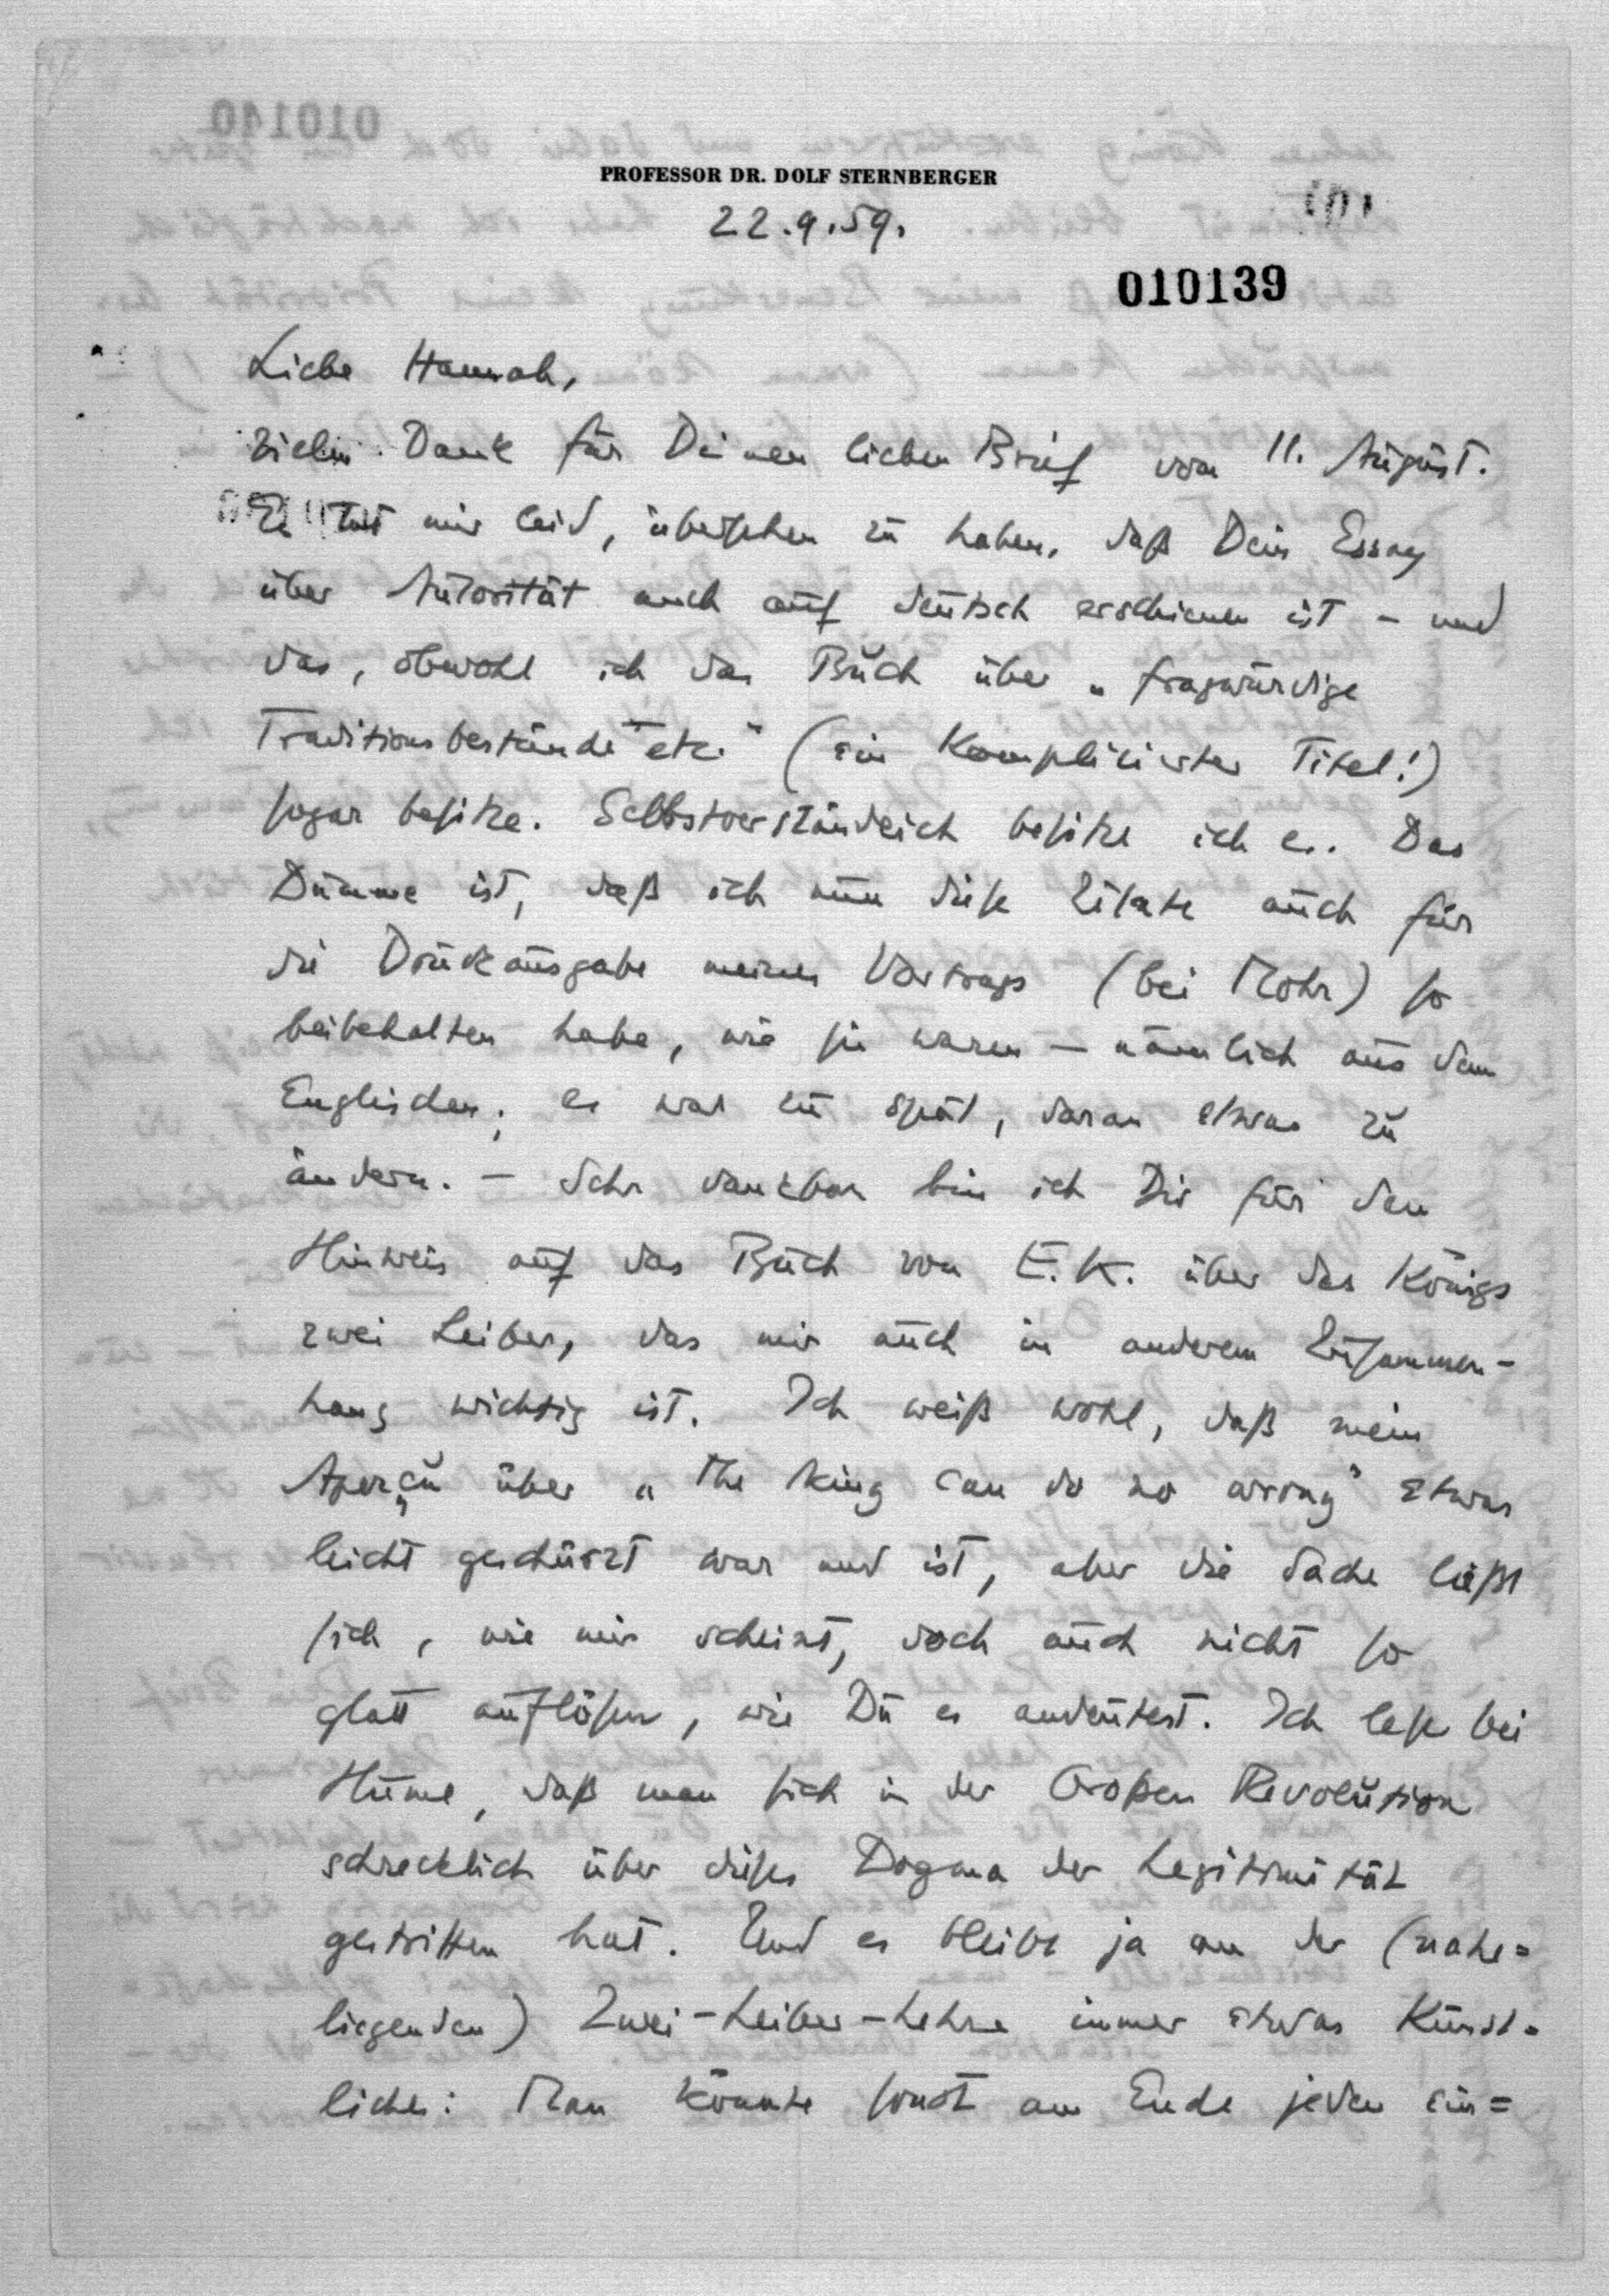 PROFESSOR DR. DOLF STERNBERGER
22.9.59.
010139
Liebe Hannah,
vielen Dank für Deinen lieben Brief vom 11. August.
Es tut mir leid, übersehen zu haben, daß Dein Essay
über Autorität auch auf deutsch erschienen ist – und
das, obwohl ich das Buch über „fragwürdige
Traditionsbestände etc." (ein komplizierter Titel!)
sogar besitze. Selbstverständlich besitze ich es. Das
Dumme ist, daß ich nun diese Zitate auch für
die Druckausgabe meines Vortrags (bei Mohr) so
beibehalten habe, wie sie waren – nämlich aus dem
Englischen; es war zu spät, daran etwas zu
ändern. – Sehr dankbar bin ich Dir für den
Hinweis auf das Buch von E.K. über des Königs
zwei Leiber, das mir auch in anderem Zusammen-
hang wichtig ist. Ich weiß wohl, daß mein
Aperçu über „The king can do no wrong" etwas
leicht geschürzt war und ist, aber die Sache läßt
sich, wie mir scheint, doch auch nicht so
glatt auflösen, wie Du es andeutest. Ich lese bei
Hume, daß man sich in der Großen Revolution
schrecklich über dieses Dogma der Legitimität
gestritten hat. Und es bleibt ja an der (nahe=
liegenden) Zwei-Leiber-Lehre immer etwas Künst-
liches: Man könnte sonst am Ende jeden ein=
010140